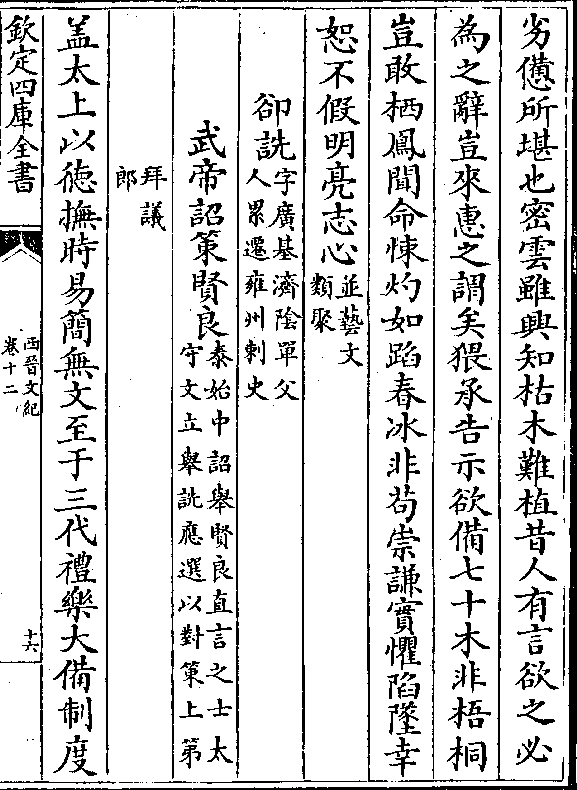 劣憊所堪也密雲雖興知枯木難植昔人有言欲之必
為之辭豈來惠之謂矣猥承告示欲備七十木非梧桐
豈敢栖鳳聞命悚灼如蹈春冰非苟崇謙實懼陷墜幸
恕不假明亮志心並藝文
類聚
郤詵字廣基濟陰單父
人累遷雍州刺史
武帝詔策賢良泰始中詔舉賢良直言之士太
守文立舉詵應選以對策上第
拜議
郎
盖太上以德撫時易簡無文至于三代禮樂大備制度
欽定四庫全書
西晉文紀
卷十二
十六